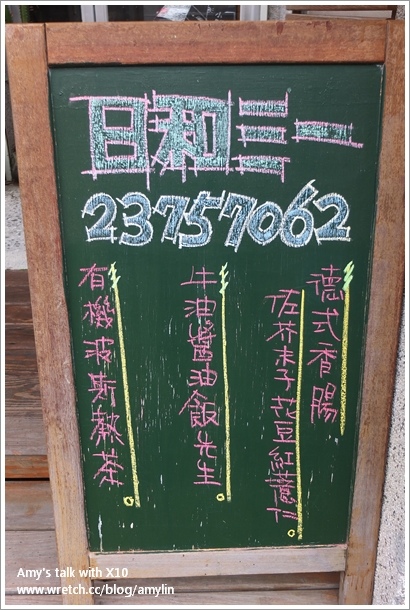 日和三一
23757062
德式香腸
佐芥末子花豆紅薏仁
牛油醬油飯先生
有機波斯熱茶
Amy's talk with X10
www.wretch.cc/blog/amylin